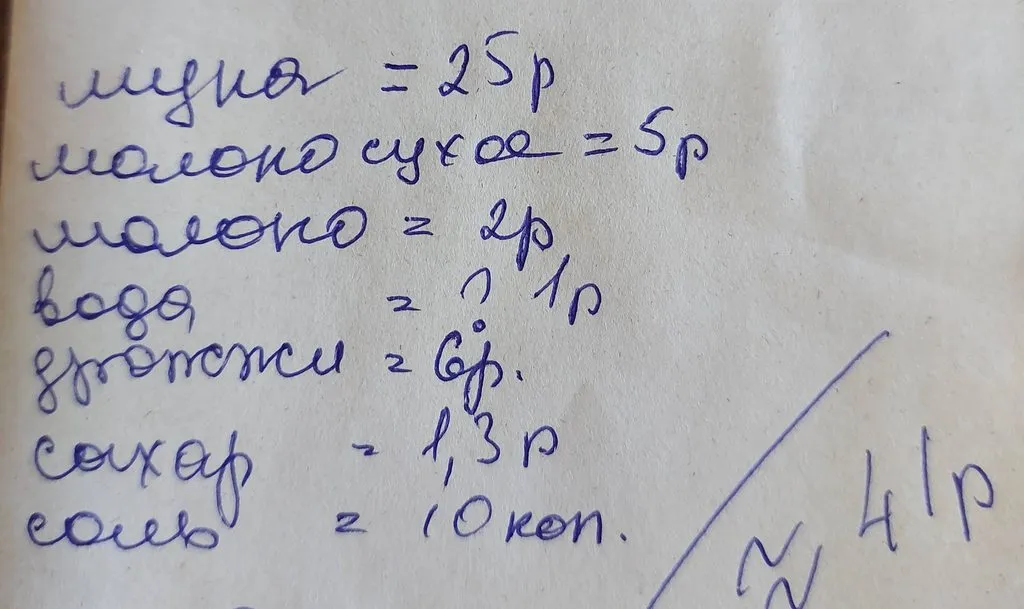 мука = 25р
молоко сухое = 5р
молоко = 2р
вода = ? 1р
дрожжи = 6р.
сахар = 1,3р
соль = 10 коп.
≈ 41р